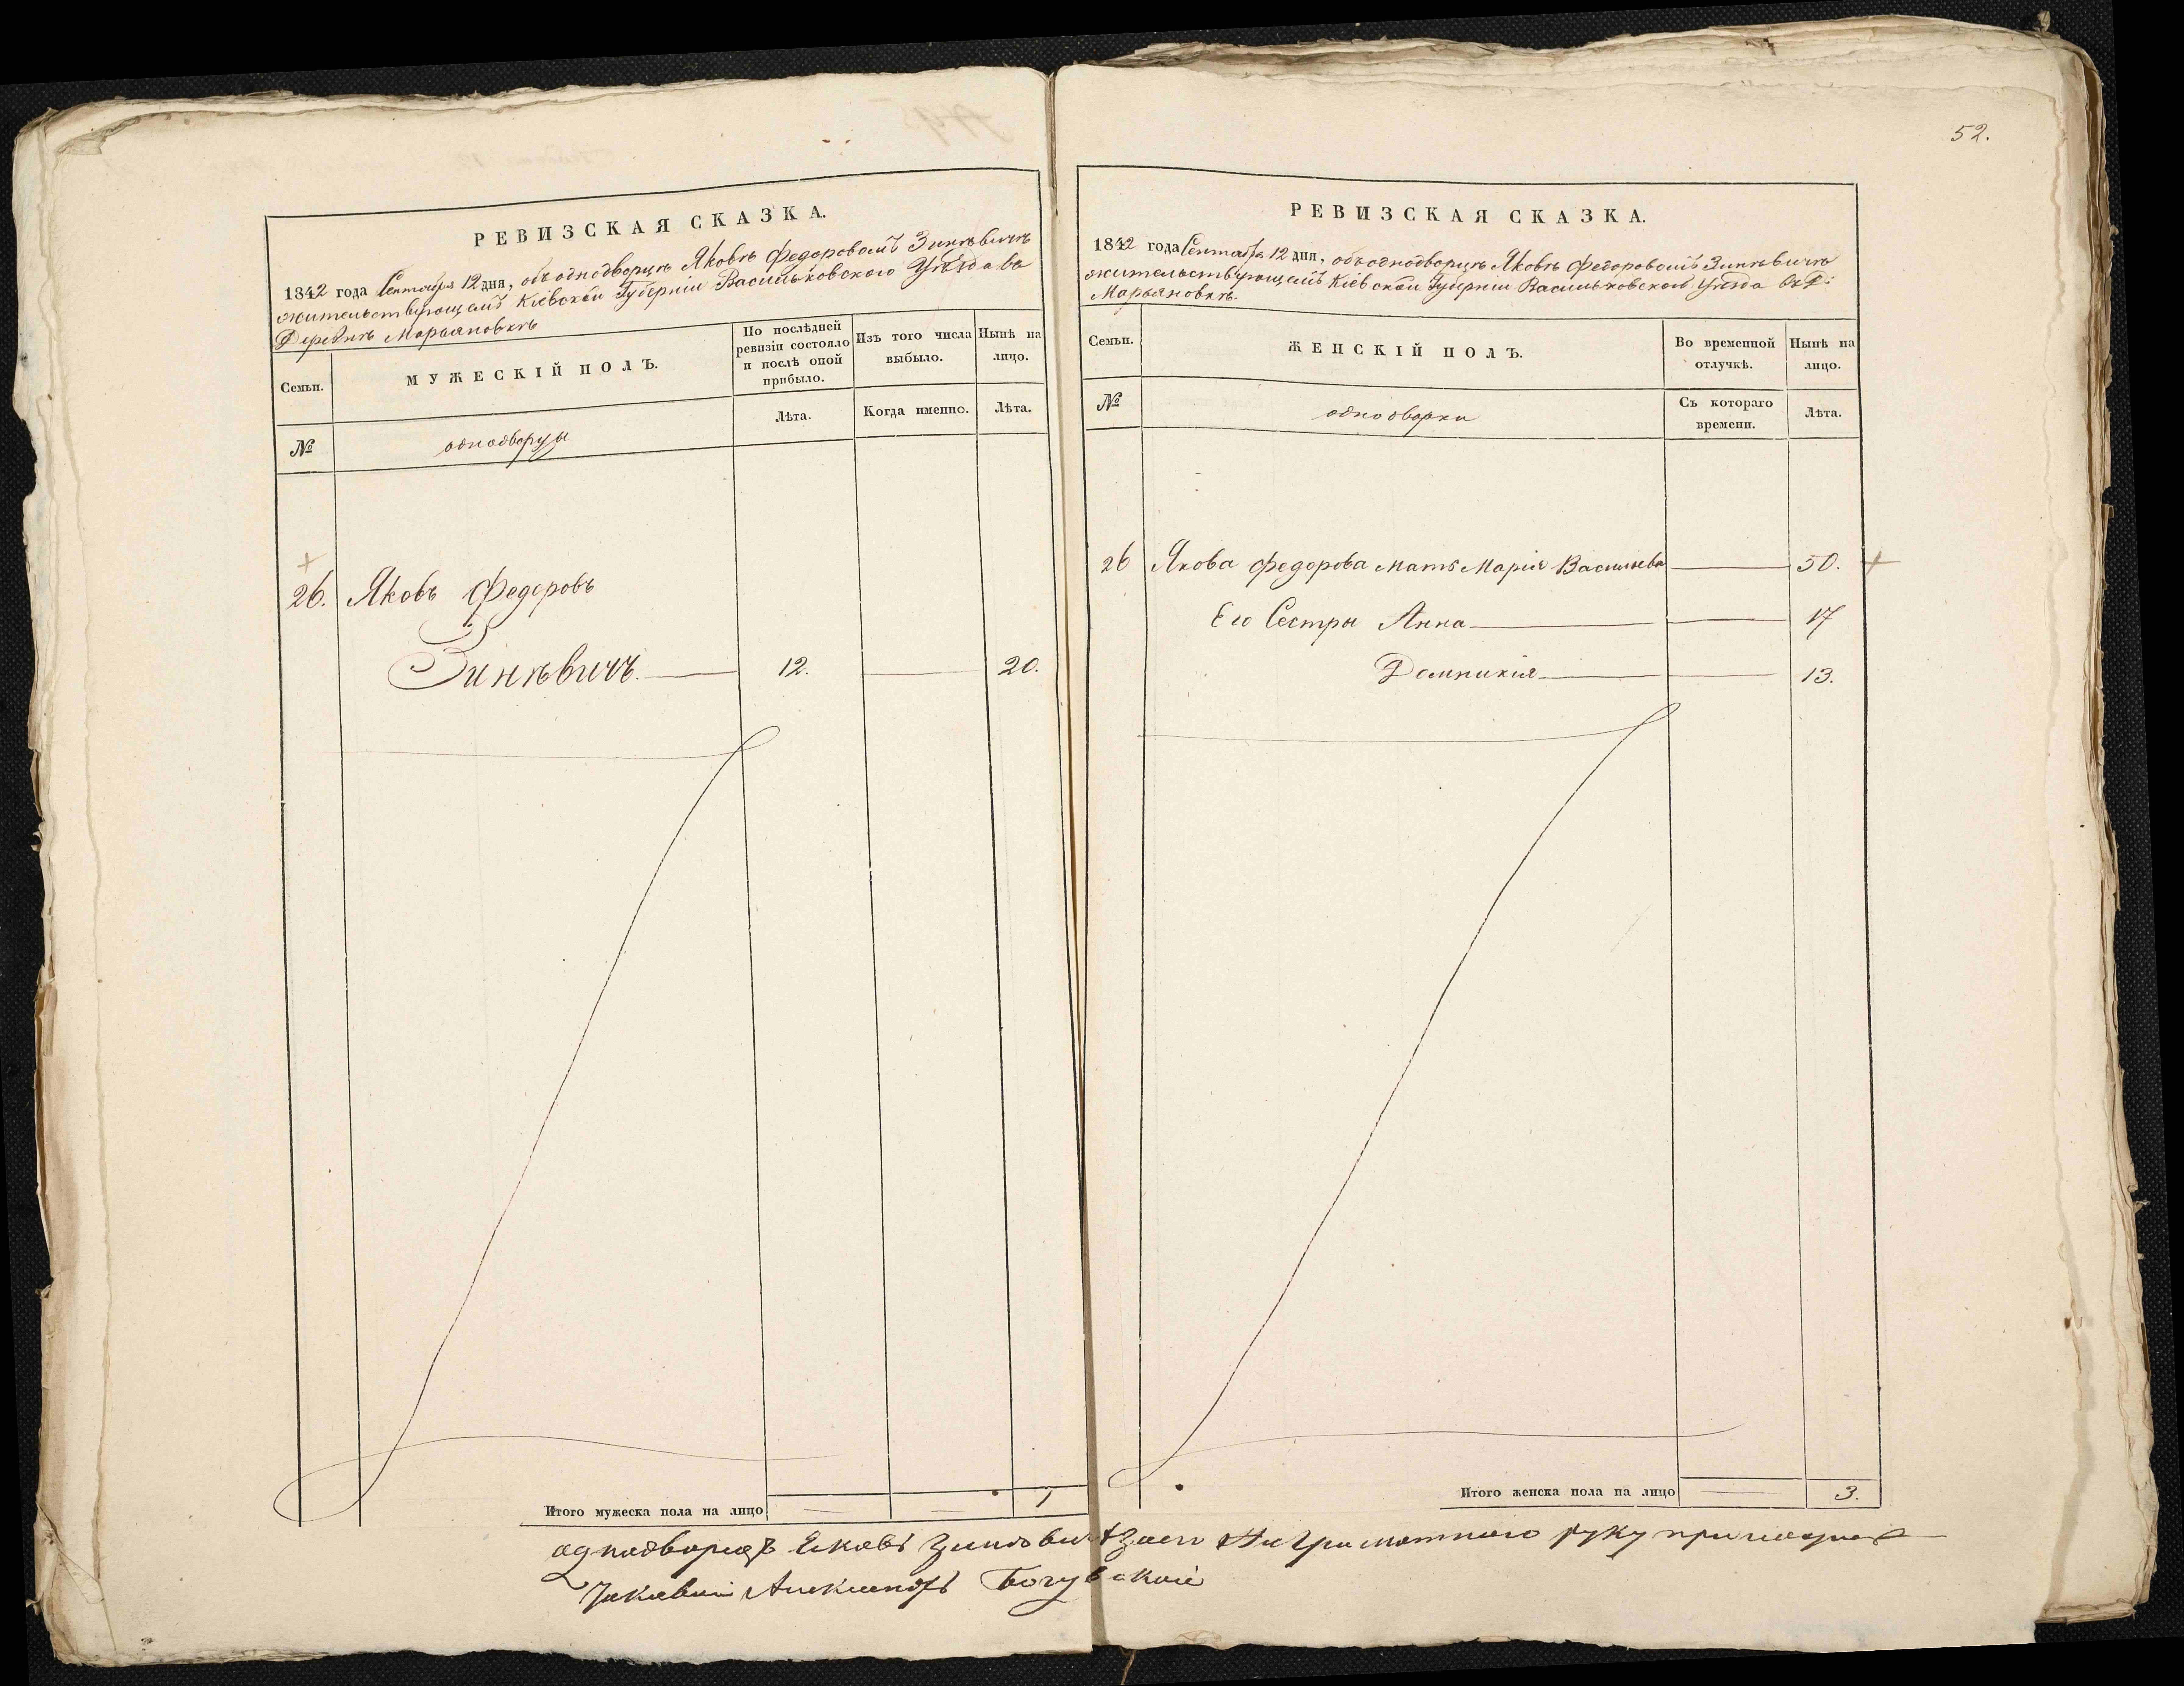 РЕВИЗСКАЯ СКАЗКА.
1842 года Сентября 12 дня, объ однодворцѣ Яковѣ Федоровомъ Зинѣвичѣ
жительствующемъ Кіевской Губерніи Васильковского Уѣзда въ
Деревнѣ Марьяновкѣ
Семьи.
МУЖЕСКІЙ ПОЛЪ.
По послѣдней
ревизіи состояло
и послѣ оной
прибыло.
Изъ того числа
выбыло.
Нынѣ на
лицо.
№
однодворцы
Лѣта.
Когда именно.
Лѣта.
26. Яковъ Федоровъ
Зинѣвичъ. 12. 20.
Итого мужеска пола на лицо 1
52.
РЕВИЗСКАЯ СКАЗКА.
1842 года Сентября 12 дня, объ однодворцѣ Яковѣ Федоровомъ Зинѣвичѣ
жительствующемъ Кіевской Губерніи Васильковского Уѣзда въ Д:
Марьяновкѣ.
Семьи.
ЖЕНСКІЙ ПОЛЪ.
Во временной
отлучкѣ.
Нынѣ на
лицо.
№
однодворки
Съ котораго
времени.
Лѣта.
26 Якова Федорова мать Марія Васильева 50.
Его Сестры Анна 17
Домникия 13.
Итого женска пола на лицо 3.
однодворецъ Яковъ руку
Александръ